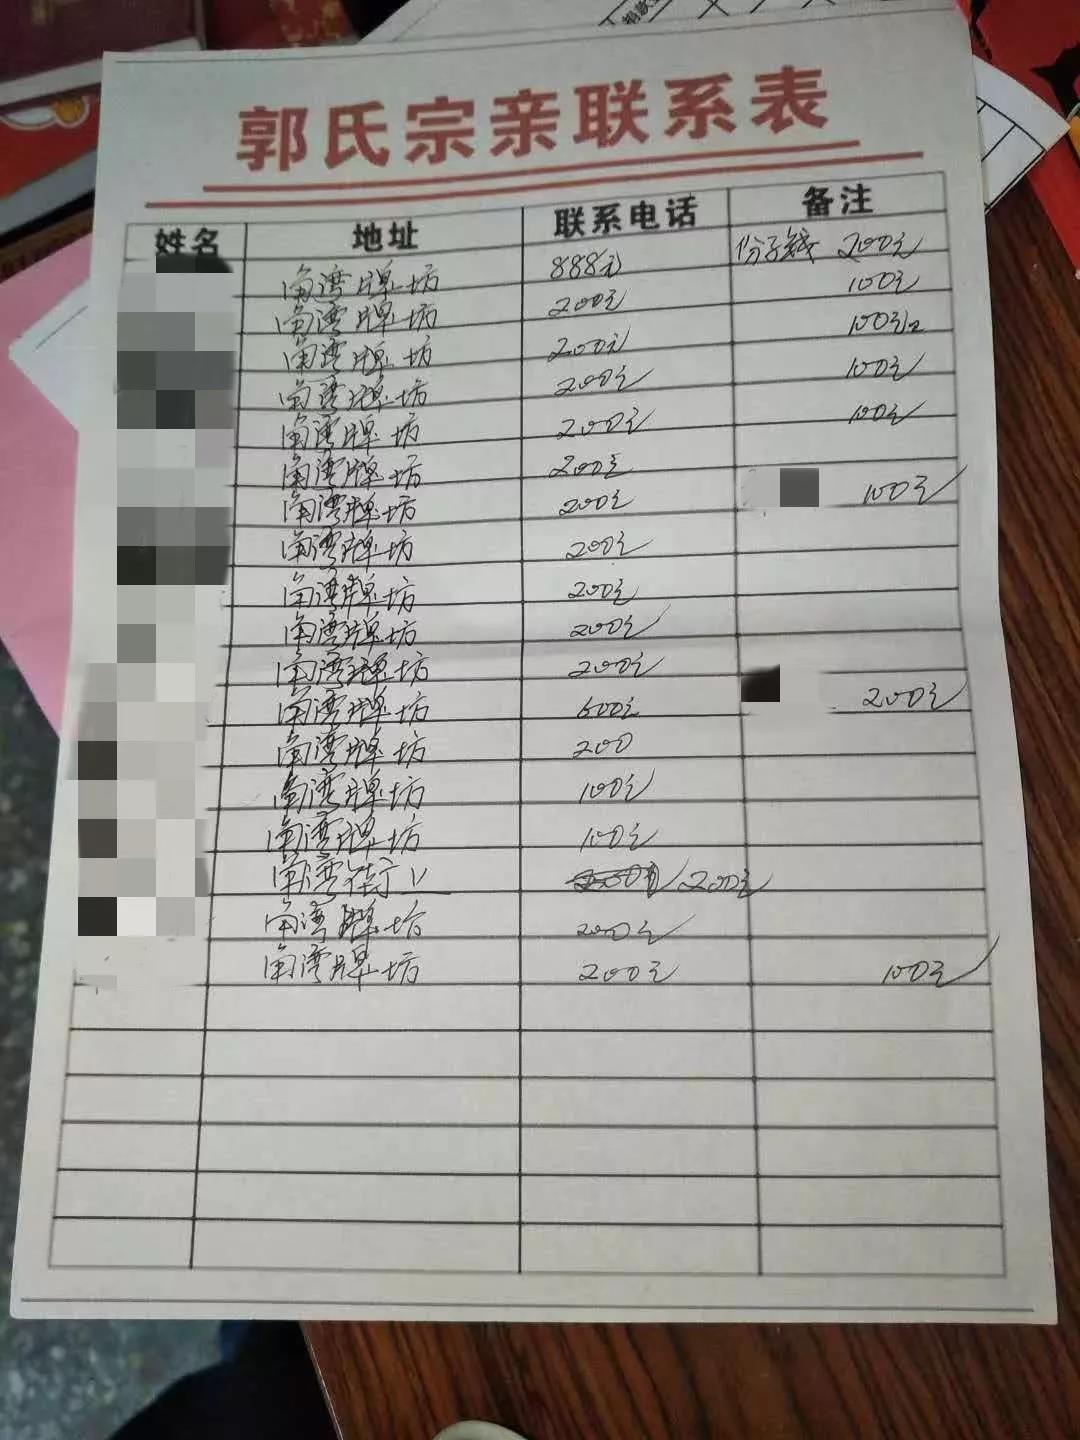 郭氏宗亲联系表
姓名 地址 联系电话 备注
南湾牌坊 888元 份子钱 200元
南湾牌坊 200元 100元
南湾牌坊 200元 100元
南湾牌坊 200元 100元
南湾牌坊 200元 100元
南湾牌坊 200元
南湾牌坊 200元 100元
南湾牌坊 200元
南湾牌坊 200元
南湾牌坊 200元
南湾牌坊 200元
南湾牌坊 600元 200元
南湾牌坊 200
南湾牌坊 100元
南湾牌坊 100元
南湾街上 200元
南湾牌坊 200元
南湾牌坊 200元 100元